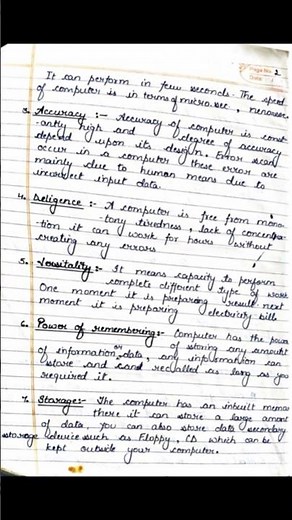 Page No. 2
Date
It can perform in few seconds. The speed
of computer is in terms of micro sec, nenosec
3. Accuracy :- Accuracy of computer is const
-antly high and degree of accuracy
depend upon its design. Error scan
occur in a computer these error are
mainly due to human means due to
incorrect input data.
4. Deligence :- A computer is free from mono
-tony tiredness, lack of concentra-
-tion it can work for hours without
creating any errors
5. Versitality :- It means capacity to perform
complete different type of work
One moment it is preparing result next
moment it is preparing electricity bills
6. Power of remembering :- Computer has the power
of storing any amount
of information or data, any information can
store and cand recalled as long as you
required it.
7. Storage :- The computer has an inbuilt memor
there it can store a large amount
of data, you can also store data secondary
storage device such as Floppy, CD which can be
kept outside your computer.